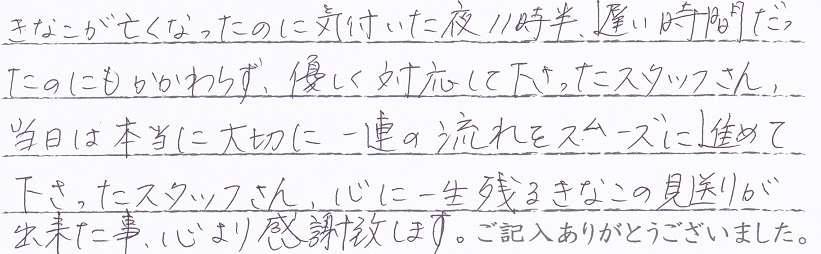 きなこが亡くなったのに気付いた夜11時半、遅い時間だっ
たのにもかかわらず、優しく対応して下さったスタッフさん、
当日は本当に大切に一連の流れをスムーズに進めて
下さったスタッフさん、心に一生残るきなこの見送りが
出来た事、心より感謝致します。ご記入ありがとうございました。